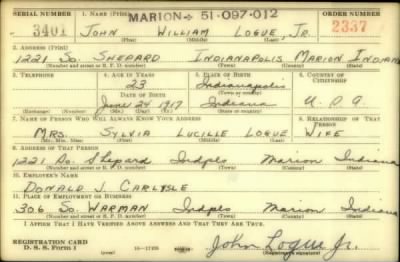 SERIAL NUMBER 1. NAME (Print) MARION + 51-097-012 ORDER NUMBER
3401 JOHN WILLIAM LOGUE, JR. 2337
(First) (Middle) (Last)
2. ADDRESS (Print)
1221 SO. SHEPARD INDIANAPOLIS MARION INDIANA
(Number and street or R. F. D. number) (Town) (County) (State)
3. TELEPHONE 4. AGE IN YEARS 5. PLACE OF BIRTH 6. COUNTRY OF CITIZENSHIP
23 Indianapolis
DATE OF BIRTH (Town or county)
June 24 1917 Indiana U.S.A.
(Exchange) (Number) (Mo.) (Day) (Yr.) (State or country)
7. NAME OF PERSON WHO WILL ALWAYS KNOW YOUR ADDRESS 8. RELATIONSHIP OF THAT PERSON
MRS. SYLVIA LUCILLE LOGUE WIFE
(Mr., Mrs., Miss) (First) (Middle) (Last)
9. ADDRESS OF THAT PERSON
1221 So. Shepard Indpls Marion Indiana
(Number and street or R. F. D. number) (Town) (County) (State)
10. EMPLOYER'S NAME
DONALD J. CARLYSLE
11. PLACE OF EMPLOYMENT OR BUSINESS
306 SO. WARMAN Indpls Marion Indiana
(Number and street or R. F. D. number) (Town) (County) (State)
I AFFIRM THAT I HAVE VERIFIED ABOVE ANSWERS AND THAT THEY ARE TRUE.
REGISTRATION CARD
D. S. S. Form 1 (over) John Logue Jr.
(Registrant's signature)